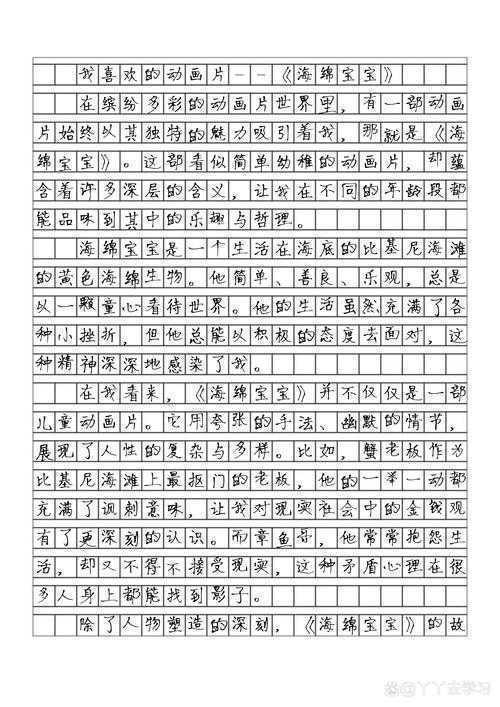 我喜欢的动画片--《海绵宝宝》
在缤纷多彩的动画片世界里，有一部动画
片始终以其独特的魅力吸引着我，那就是《海
绵宝宝》。这部看似简单幼稚的动画片，却蕴
含着许多深层的含义，让我在不同的年龄段都
能品味到其中的乐趣与哲理。
海绵宝宝是一个生活在海底的比基尼海滩
的黄色海绵生物。他简单、善良、乐观，总是
以一颗童心看待世界。他的生活虽然充满了各
种小挫折，但他总能以积极的态度去面对，这
种精神深深地感染了我。
在我看来，《海绵宝宝》并不仅仅是一部
儿童动画片。它用夸张的手法、幽默的情节，
展现了人性的复杂与多样。比如，蟹老板作为
比基尼海滩上最抠门的老板，他的一举一动都
充满了讽刺意味，让我对现实社会中的金钱观
有了更深刻的认识。而章鱼哥，他常常抱怨生
活，却又不得不接受现实，这种矛盾心理在很
多人身上都能找到影子。
除了人物塑造的深刻，《海绵宝宝》的故
@丫丫去学习